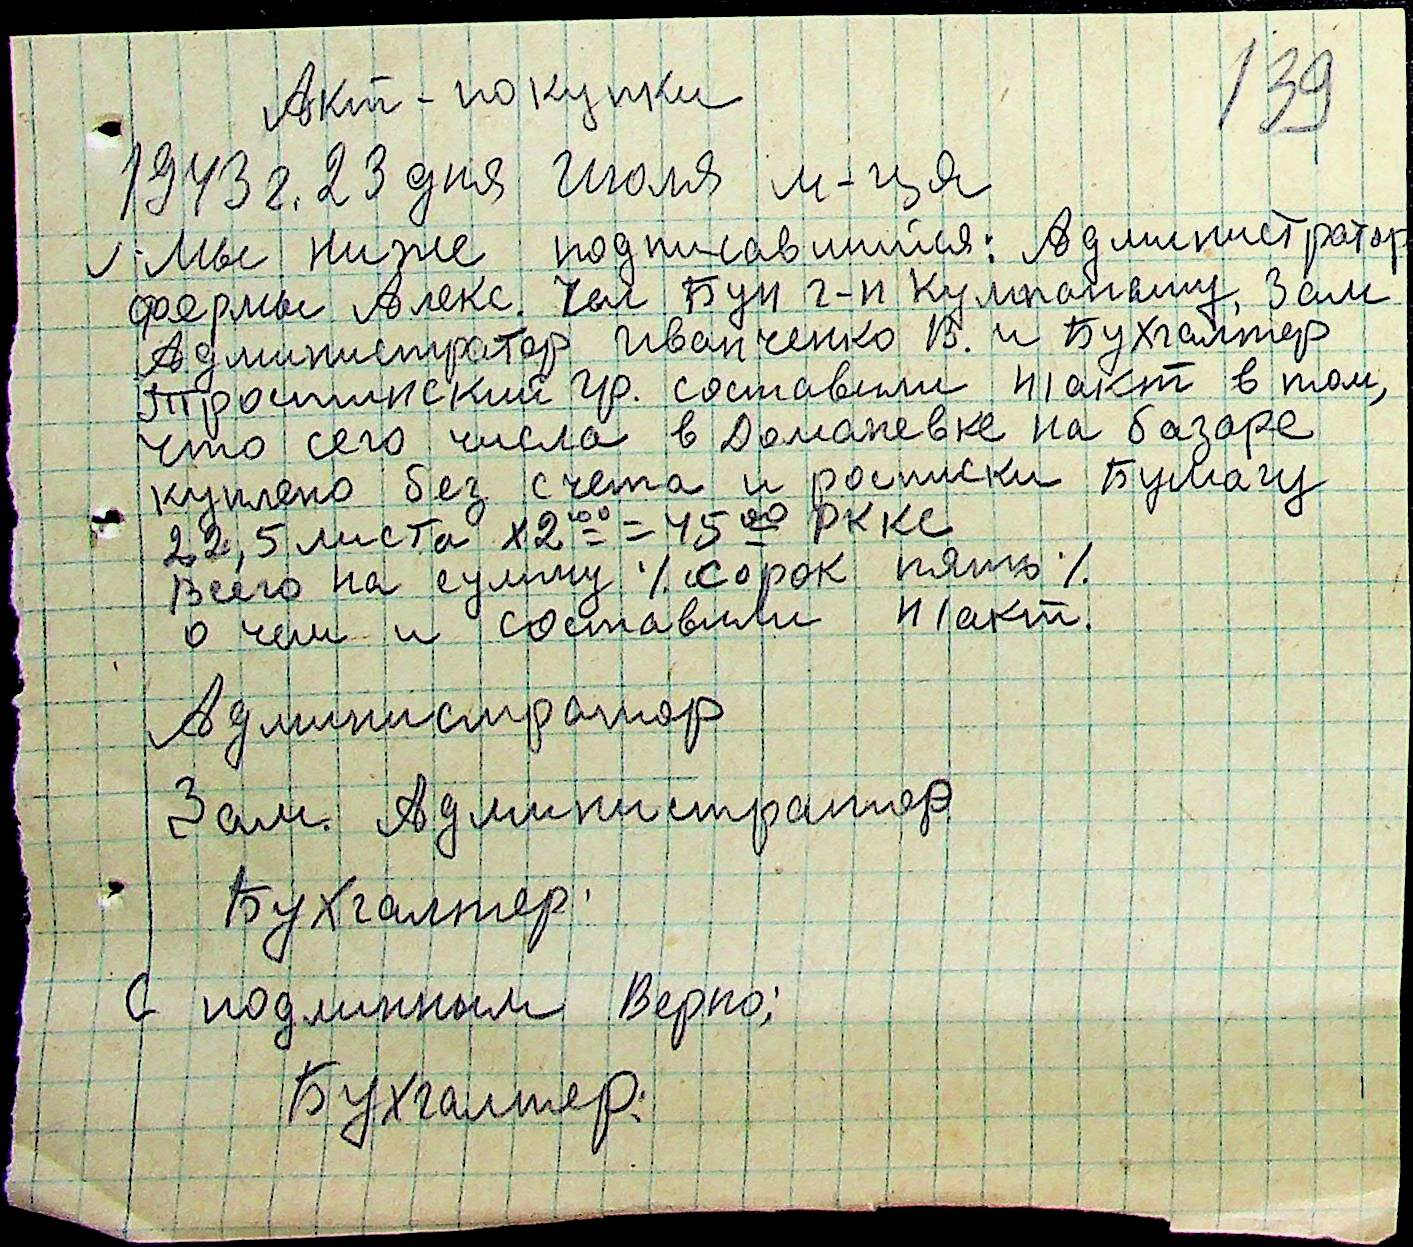 139
Акт - покупки
1943 г. 23 дня Июля м-ця
Мы ниже подписавшийся: Администратор
фермы Алекс. Чел Бун г-н Кумпанашу, Зам
Администратор Иванченко В. и Бухгалтер
Тростинский Гр. составили н/акт в том,
что сего числа в Доманевке на базаре
куплено без счета и росписки Бумагу
22,5 листа х2 00 = 45 00 РККС
Всего на сумму ·/. сорок пять ·/.
о чем и составили н/акт.
Администратор
Зам. Администратор
Бухгалтер:
С подлинным Верно:
Бухгалтер: